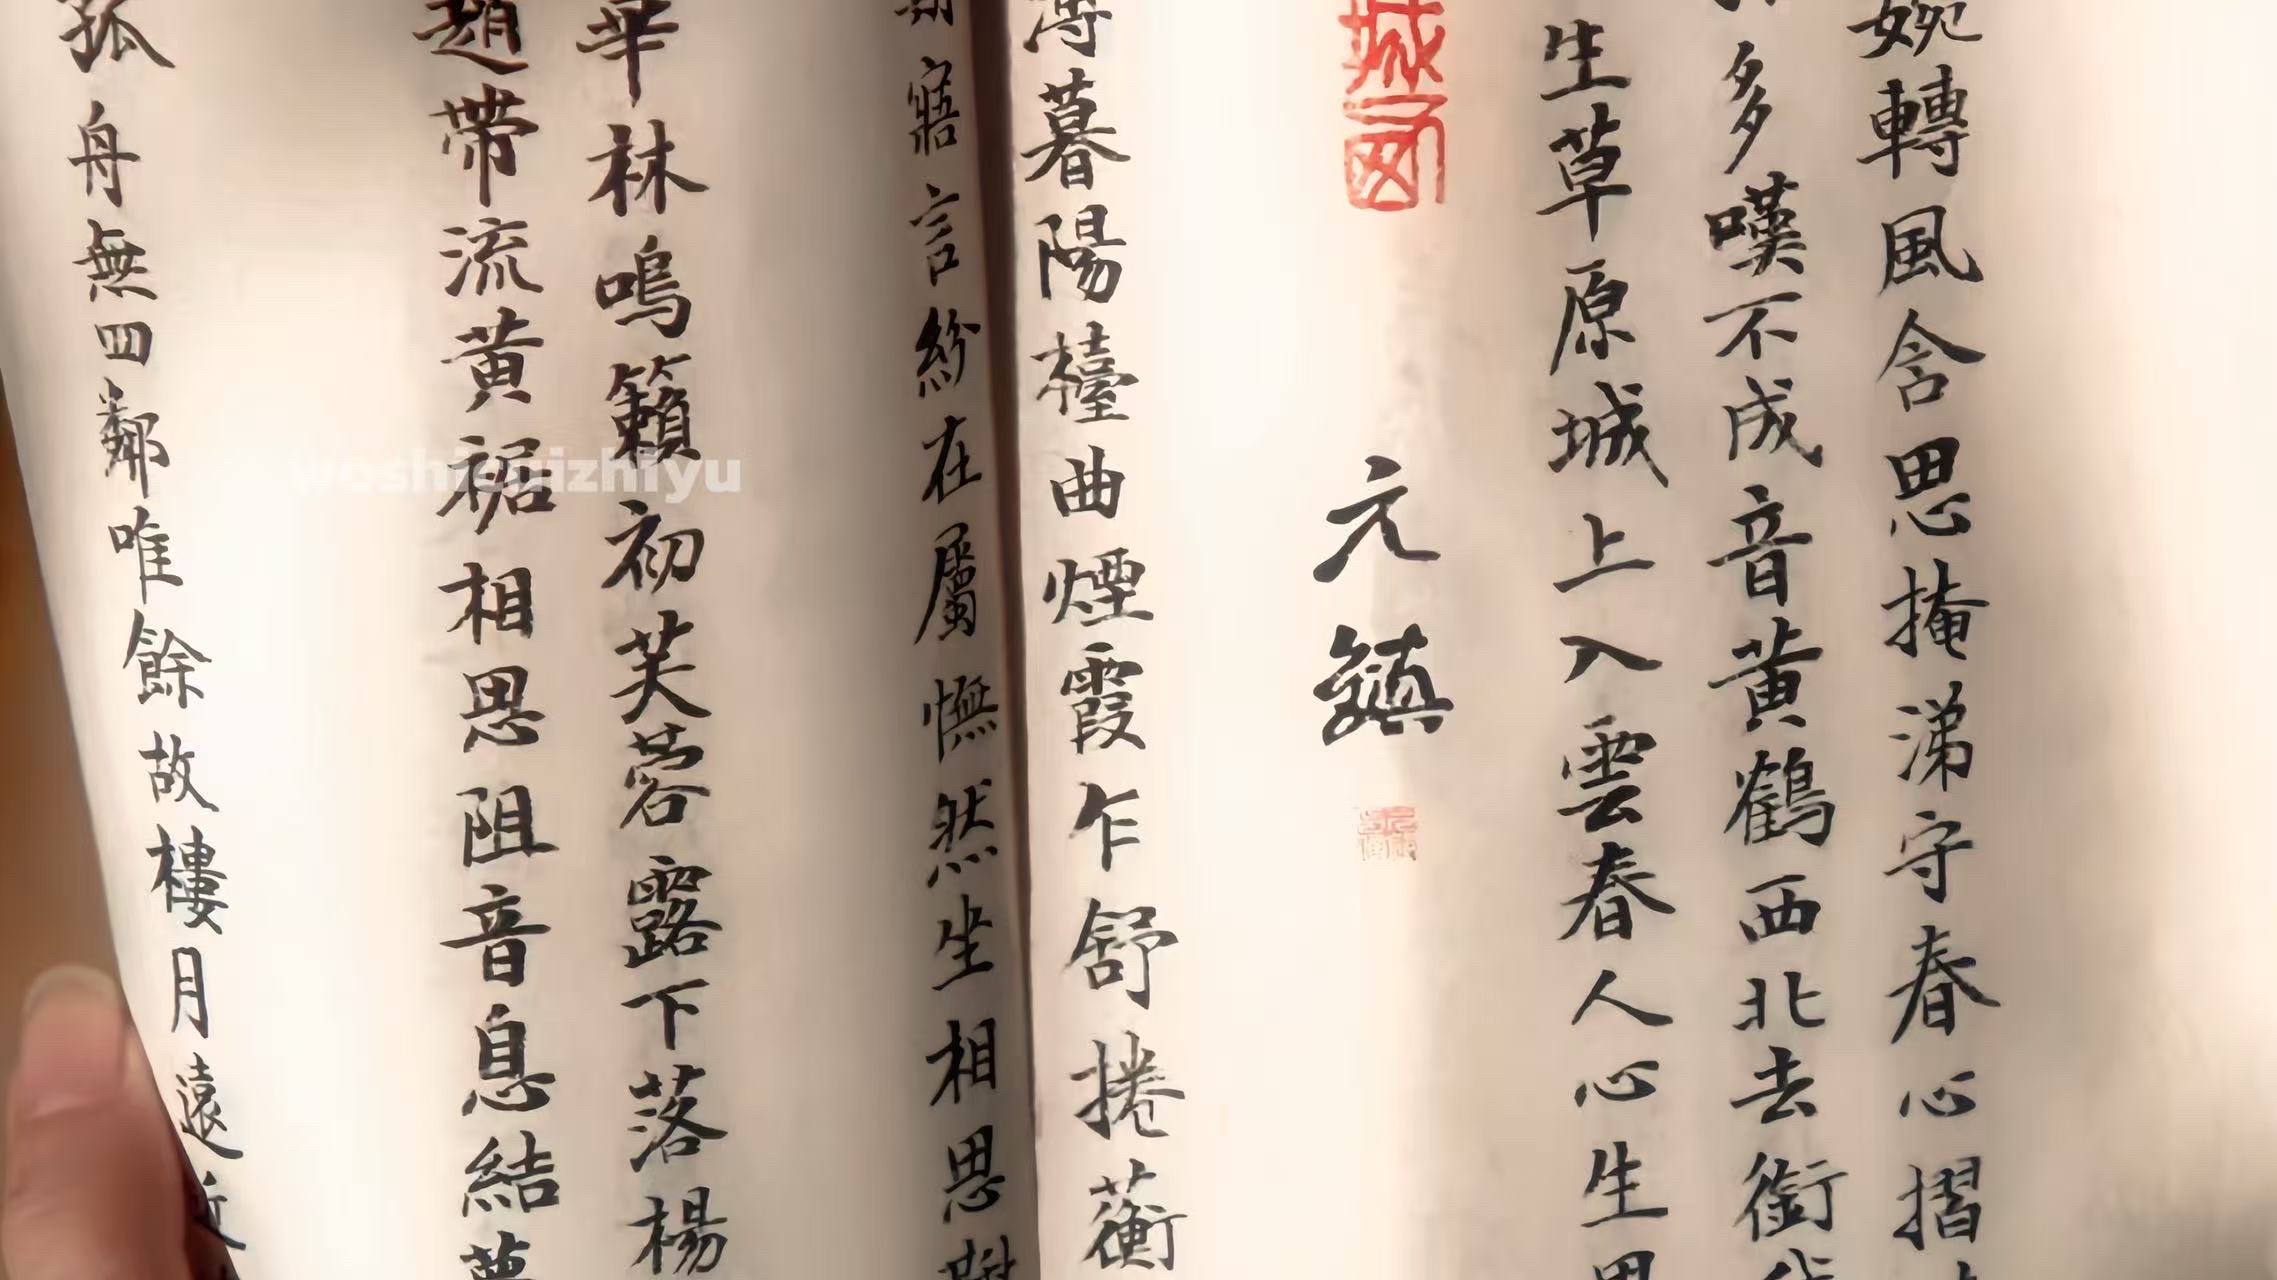 婉轉風含思掩涕守春心摺
多嘆不成音黃鶴西北去銜
生草原城上入雲春人心生思
元鎮
薄暮陽檯曲煙霞乍舒捲蘅
寤言紛在屬憮然坐相思
華林鳴籟初芙蓉露下落楊
趙帶流黃裾相思阻音息結夢
孤舟無四鄰唯餘故樓月遠近